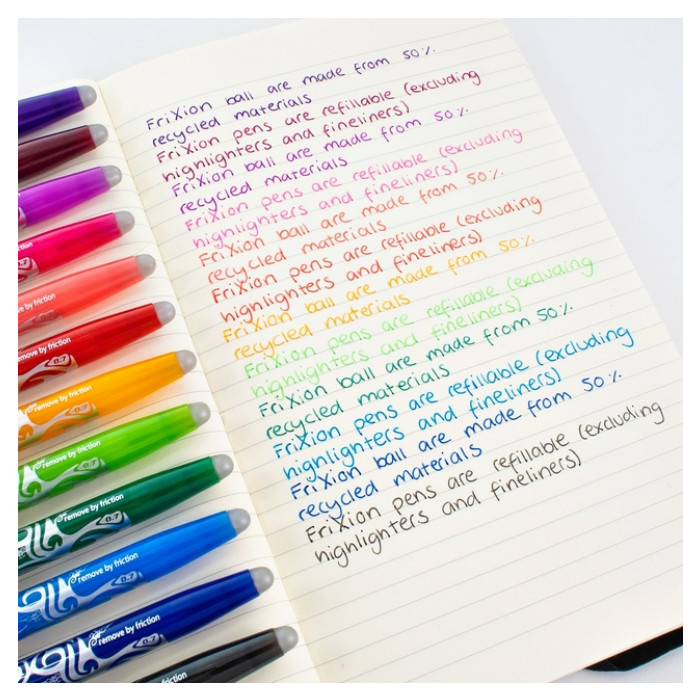 FriXion ball are made from 50%
recycled materials
FriXion pens are refillable (excluding
highlighters and fineliners)
FriXion ball are made from 50%
recycled materials
FriXion pens are refillable (excluding
highlighters and fineliners)
FriXion ball are made from 50%
recycled materials
FriXion pens are refillable (excluding
highlighters and fineliners)
FriXion ball are made from 50%
recycled materials
FriXion pens are refillable (excluding
highlighters and fineliners)
FriXion ball are made from 50%
recycled materials
FriXion pens are refillable (excluding
highlighters and fineliners)
FriXion ball are made from 50%
recycled materials
FriXion pens are refillable (excluding
highlighters and fineliners)
by friction
move by friction
0.7
remove by friction
0.7
remove by friction
0.7
remove by friction
0.7
remove by friction
0.7
remove by friction
0.7
friction